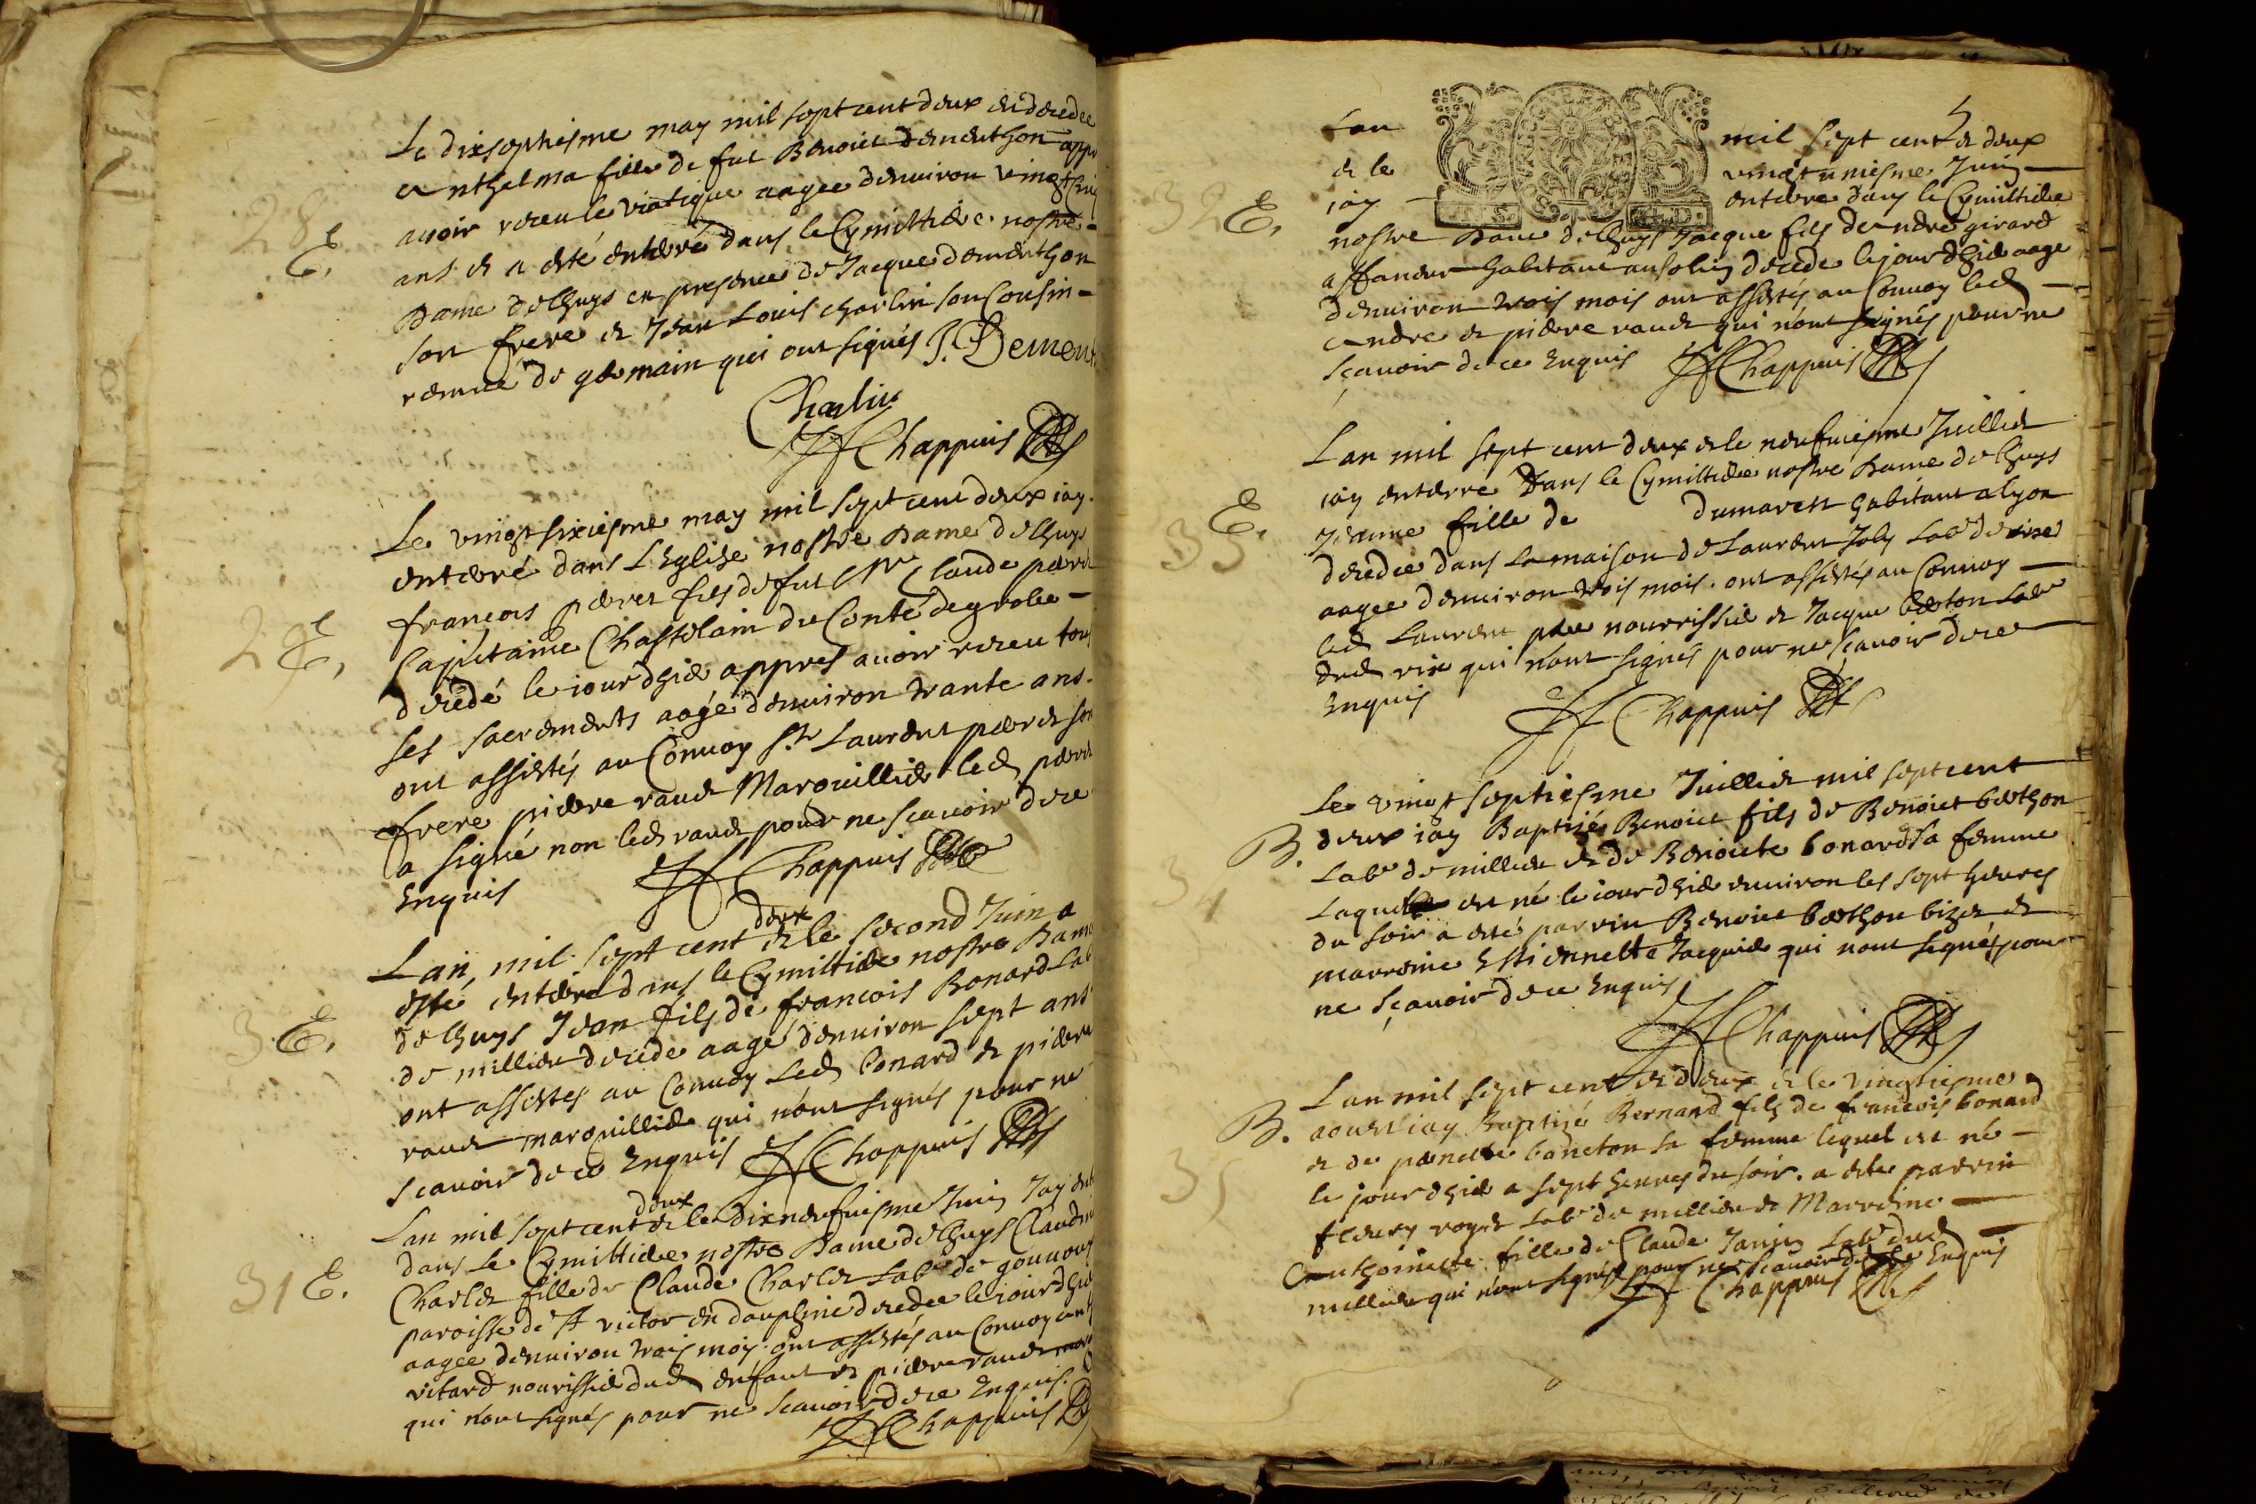 Le dixseptiesme may mil sept cent deux est decedee
Anthelma fille de fut Benoict Dementhon appr
avoir receu le viatique aagee denviron vingt
ans et a esté enterré dans le Cymittiere nostre
28 E.
Dame delhuys en presence de Jacque dementhon
son frere et Jean Louis charlin son Cousin
remué de germain qui ont signés J. Dement
Charlin
Chappuis
Le vingt sixiesme may mil sept cent deux iay
enterré dans L'Eglize nostre Dame delhuys
francois perret fils de fut Sr Claude perret
29 E.
Capitaine Chastelain du Conté de grolee
decedé le iourdhier appres avoir receu tous
ses sacrements aagé denviron trante ans
ont assistés au Convoy Sr Laurent perret son
frere pierre raud Marquillier led perret
a signé non led raud pour ne scavoir de ce
Enquis Chappuis
deux
Lan mil sept cent et le second Juin a
esté enterré dans le Cymittiere nostre Dame
30 E.
delhuys Jean fils de francois Bonard Lab
de millieu decede aagé denviron sept ans
ont assistes au Convoy Led bonard et pierre
raud marquillier qui n'ont signés pour ne
scavoir de ce Enquis Chappuis
deux
Lan mil sept cent et le dixneufuiesme Juin Jay ent
dans Le Cymittiere nostre Dame delhuys Claud
31 E.
Charlet fille de Claude Charlet Labr de
paroisse de St victor en dauphiné decedee le iourdhier
aagee denviron trois mois ont assistés au Convoy
vitard nourissier dud enfant et pierre raud
qui n'ont signés pour ne scavoir de ce Enquis
Chappuis
Lan mil sept cent et deux
et le vingtuniesme Juin
32 E.
iay enterre dans le Cymittiere
nostre Dame delhuys Jacque fils dandré girard
affaneur habitant ansolin decede le jourdhier aage
denviron trois mois ont assistés au Convoy led
Andre et pierre raud qui n'ont signés pour ne
sçavoir de ce Enquis Chappuis
Lan mil sept cent deux et le neufuiesme Juillet
iay enterre Dans le Cymittiere nostre Dame delhuys
33 E.
Jeanne fille de dumarest habitant a lyon
decedee dans La maison de Laurent Joly Labr de rix
aagee denviron trois mois ont assistés au Convoy
led Laurent pere nourrissier et Jacque berton Labr
dud rix qui n'ont signés pour ne sçavoir de ce
Enquis Chappuis
Le vingt septiesme Juillet mil sept cent
B. deux iay Baptizé Benoict fils de Benoict berthon
34
Labr de millieu et de Benoicte bonard sa femme
Laquel est né le iourdhier environ les sept heures
du soir a esté parrin Benoict berthon bizet et
marreine Estiennette Jacquier qui n'ont signés pour
ne sçavoir de ce Enquis
Chappuis
Lan mil sept cent et deux et le vingtiesme
B. aoust iay Baptizé Bernard fils de francois bonard
et de pernette bancton sa femme lequel est né
35
le jourdhier a sept heures du soir a esté parrin
fleury royet Labr de millieu et Marreine
Anthoinette fille de Claude Janin Labr dud
millieu qui n'ont signés pour ne scavoir de ce Enquis
Chappuis